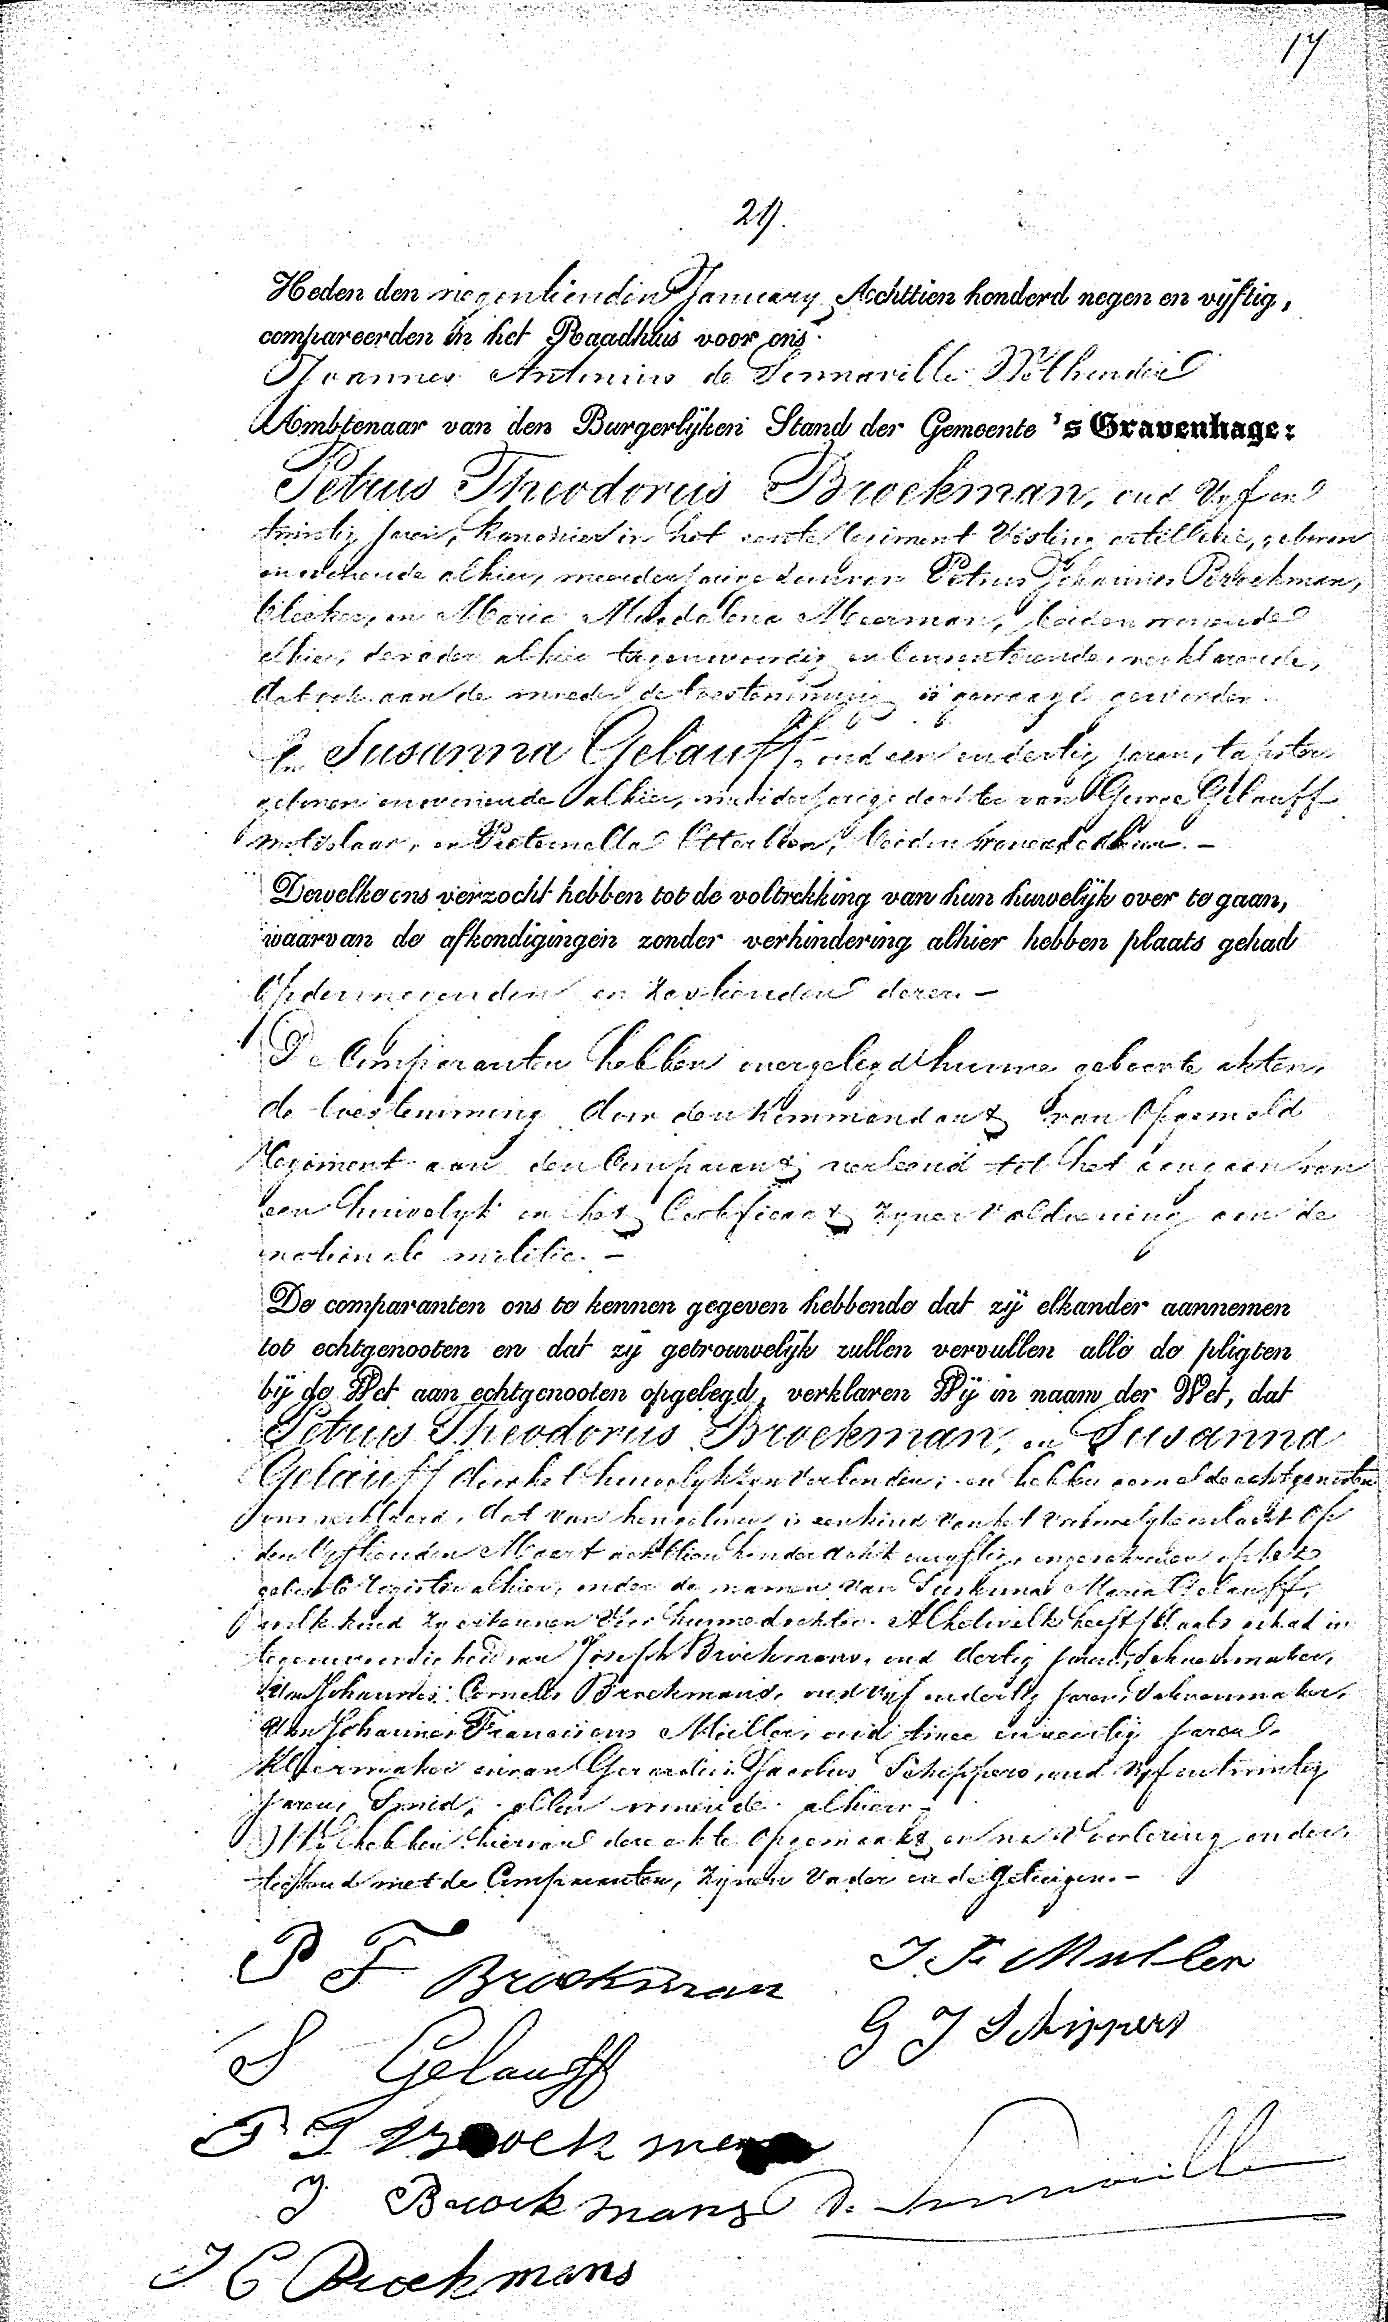 17
29.
Heden den negentienden January Achttien honderd negen en vijftig,
compareerden in het Raadhuis voor ons
Joannes Antonius de Sennaville
Ambtenaar van den Burgerlijken Stand der Gemeente 's Gravenhage:
Petrus Theodorus Broekman, oud vyf en
twintig jaren, kanonier in het eerste Regiment Vesting artillerie, geboren
en wonende alhier, meerderjarige zoon van Petrus Johannes Broekman,
bleeker, en Maria Magdalena Meerman, beiden wonende
alhier, de vader alhier tegenwoordig en consenteerende, verklarende,
dat ook aan de moeder de toestemming is gevraagd geworden.
En Susanna Gelauff, oud een en dertig jaren,
geboren en wonende alhier, meerderjarige dochter van George Gelauff
metselaar, en Pieternella, beiden wonende alhier. –
Dewelke ons verzocht hebben tot de voltrekking van hun huwelijk over te gaan,
waarvan de afkondigingen zonder verhindering alhier hebben plaats gehad
op den negenden en zestienden dezer. –
De Comparanten hebben overgelegd hunne geboorte akten,
de toestemming door den Kommandant van opgemeld
Regiment aan den Comparant verleend tot het aangaan van
een huwelyk en het Certificaat zyner voldoening aan de
nationale militie. –
De comparanten ons te kennen gegeven hebbende dat zij elkander aannemen
tot echtgenooten en dat zij getrouwelijk zullen vervullen alle de pligten
bij de Wet aan echtgenooten opgelegd, verklaren Wij in naam der Wet, dat
Petrus Theodorus Broekman, en Susanna
Gelauff door het huwelyk zyn verbonden; en hebben gemelde echtgenooten
ons verklaard, dat van hen is een kind van het vrouwelyk geslacht op
den vyftienden Maart achttien honderd acht en vyftig, ingeschreven op het
geboorte register alhier, onder de namen van Susanna Maria Gelauff,
welk kind zy erkennen voor hunne dochter. Al hetwelk heeft plaats gehad in
tegenwoordigheid van Joseph Broekmans, oud dertig jaren, schoenmaker,
van Johannes Cornelis Broekmans, oud vyf en dertig jaren, schoenmaker,
van Johannes Franciscus Muller, oud twee en veertig jaren,
kleermaker en van Gerardus Jacobus Schippers, oud vyf en twintig
jaren, smid, allen wonende alhier. –
Wij hebben hiervan deze akte opgemaakt en na voorlezing onder-
teekend met de Comparanten, zynen vader en de getuigen. –
P T Broekman
J. F. Muller
G J Schippers
S Gelauff
P J Broekman
J Broekmans
de Sennaville
J C Broekmans